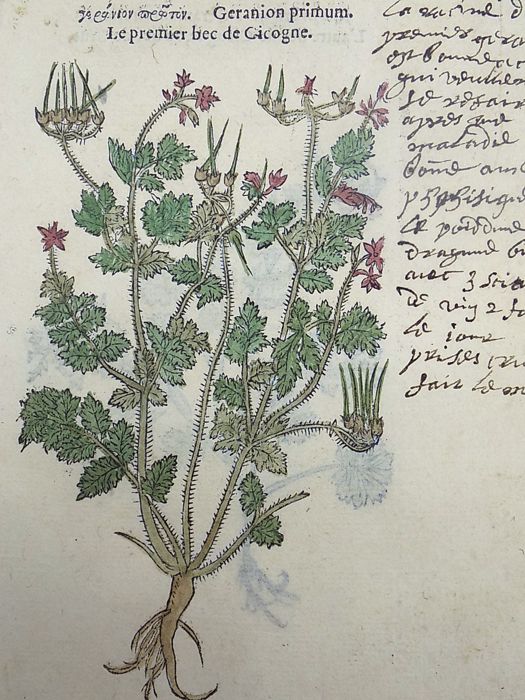 γεράνιον πρῶτον. Geranion primum.
Le premier bec de Cicogne.
La racine d
premier
est bonne
qui veullent
se refair
apres une
maladie
bone aux
phthisiqu
le poiddune
dragme
avec 3
de vin 2 fo
le jour
prises
fait le